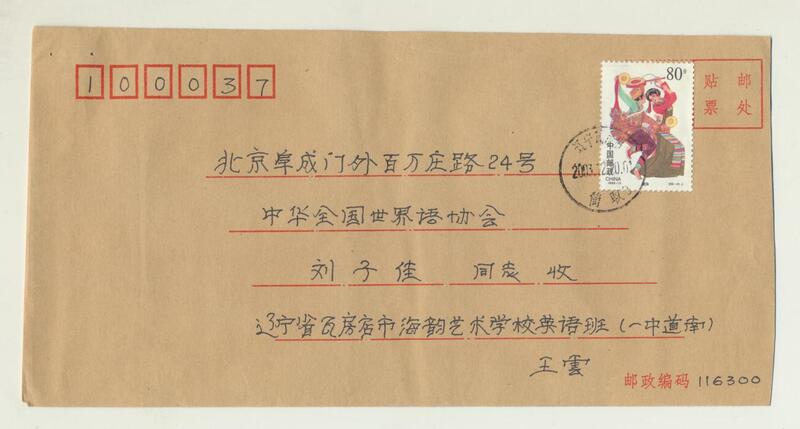 100037
80分
贴邮
票处
中国邮政
CHINA
北京阜成门外百万庄路24号
中华全国世界语协会
刘子佳 同志 收
辽宁省瓦房店市海韵艺术学校英语班(一中道南)
王雲
邮政编码 116300